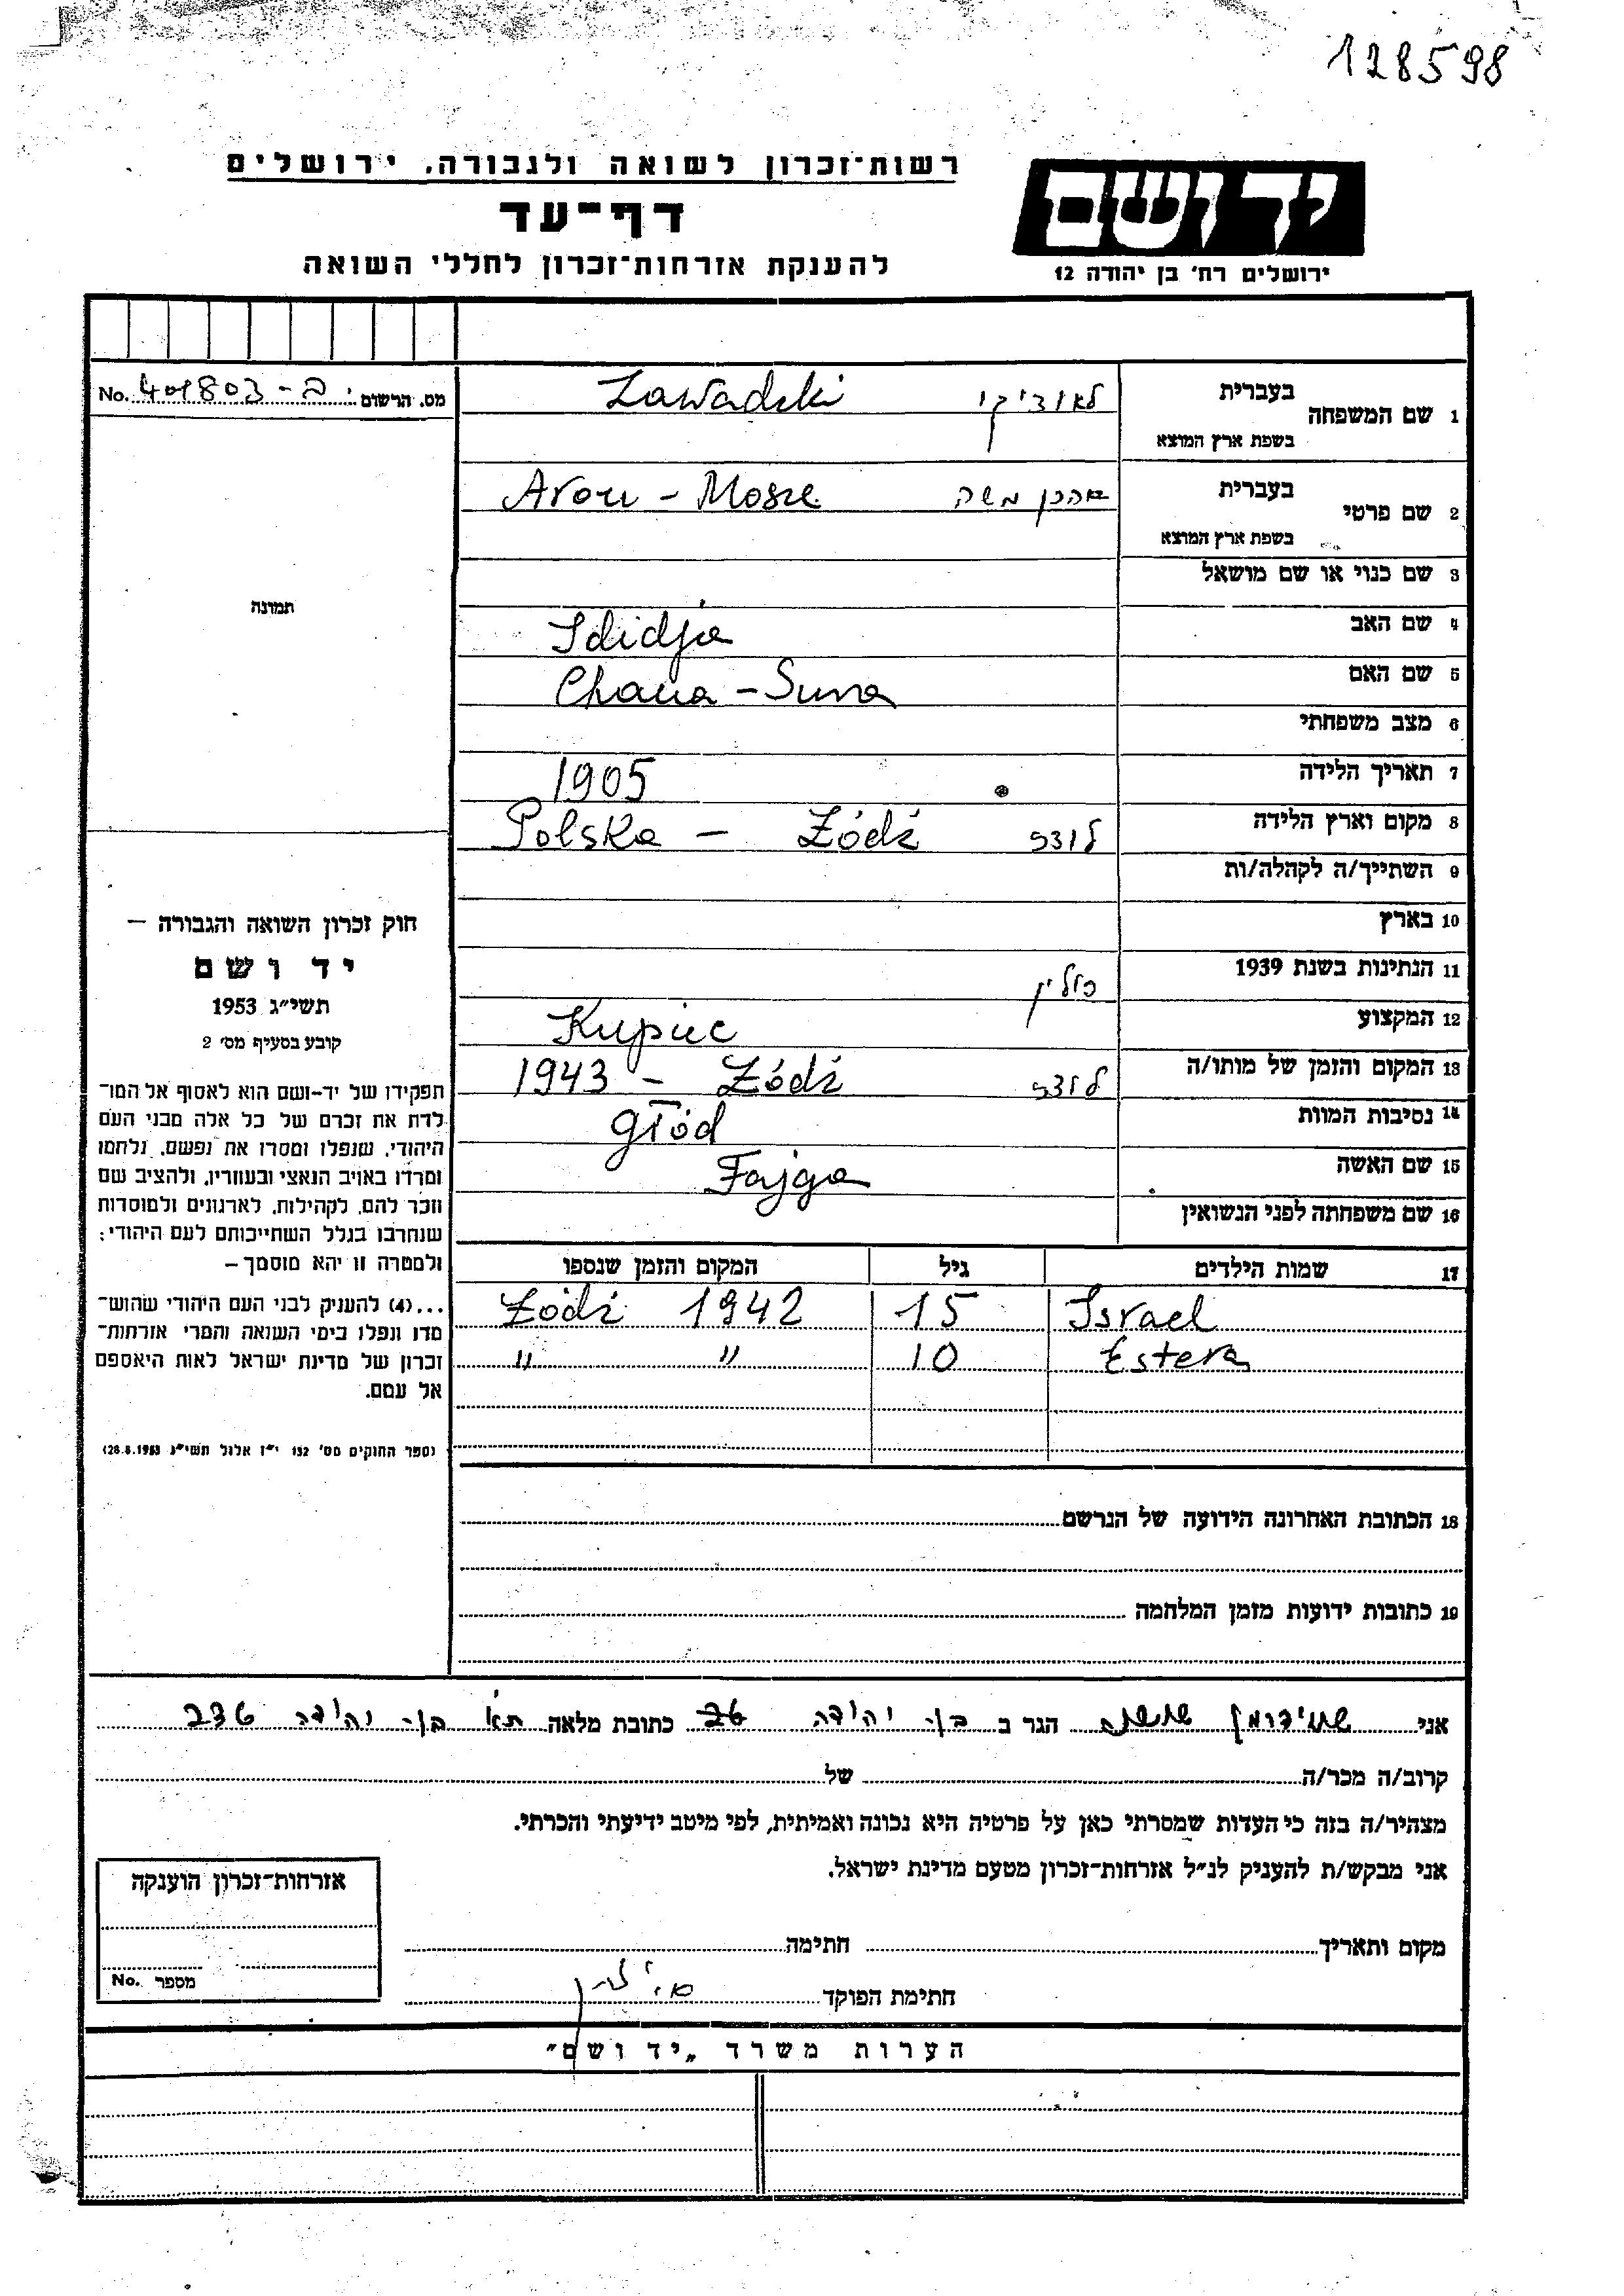 128598
רשות־זכרון לשואה ולגבורה, ירושלים
דף־עד
להענקת אזרחות־זכרון לחללי השואה
יד ושם
ירושלים רח' בן יהודה 12
מס. הרשום ב- 401803 No.
תמונה
חוק זכרון השואה והגבורה –
יד ושם
תשי״ג 1953
קובע בסעיף מס' 2
תפקידו של יד-ושם הוא לאסוף אל המו־
לדת את זכרם של כל אלה מבני העם
היהודי, שנפלו ומסרו את נפשם, נלחמו
ומרדו באויב הנאצי ובעוזריו, ולהציב שם
וזכר להם, לקהילות, לארגונים ולמוסדות
שנחרבו בגלל השתייכותם לעם היהודי;
ולמטרה זו יהא מוסמך –
...(4) להעניק לבני העם היהודי שהוש־
מדו ונפלו בימי השואה והמרי אזרחות־
זכרון של מדינת ישראל לאות היאספם
אל עמם.
(ספר החוקים מס' 132 י״ז אלול תשי״ג 28.8.1953)
1 שם המשפחה בעברית Zawadzki
בשפת ארץ המוצא
2 שם פרטי בעברית אהרן משה Aron - Mosze
בשפת ארץ המוצא
3 שם כנוי או שם מושאל
4 שם האב Ididja
5 שם האם Chana -
6 מצב משפחתי
7 תאריך הלידה 1905
8 מקום וארץ הלידה לודז Łódź – Polska
9 השתייך/ה לקהלה/ות
10 בארץ
11 הנתינות בשנת 1939 פולין
12 המקצוע Kupiec
13 המקום והזמן של מותו/ה לודז Łódź – 1943
14 נסיבות המוות głód
15 שם האשה Fajga
16 שם משפחתה לפני הנשואין
17 שמות הילדים גיל המקום והזמן שנספו
Israel 15 Łódź 1942
Estera 10 " "
18 הכתובת האחרונה הידועה של הנרשם
19 כתובות ידועות מזמן המלחמה
אני הגר ב בן־ יהודה כתובת מלאה ת״א בן־ יהודה
קרוב/ה מכר/ה של
מצהיר/ה בזה כי העדות שמסרתי כאן על פרטיה היא נכונה ואמיתית, לפי מיטב ידיעתי והכרתי.
אני מבקש/ת להעניק לנ״ל אזרחות־זכרון מטעם מדינת ישראל.
מקום ותאריך חתימה
חתימת הפוקד
אזרחות־זכרון הוענקה
מספר No.
הערות משרד „יד ושם״